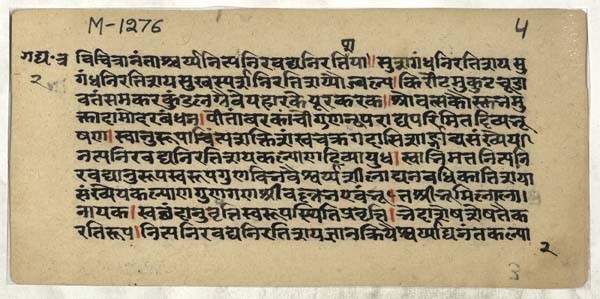 M-1276
४
गद्य॰त्र विचित्रानंताश्चर्य्यनित्यनिरवद्यनिरतिशया॥ सुत्रागंधनिरतिशयसु
२ गंधनिरतिशयसुखस्पर्शनिरतिशयौज्वल्य। किरीटमुकुटचूडा
वतंसमकरकुंडलग्रैवेयहारकेयूरकटक। श्रीवत्सकौस्तुभमु
क्तादामोदरबंधन। पीतांबरकांचीगुणनूपुराद्यपरिमितदिव्यभू
षण। स्वानुरूपाचिंत्यशक्तिशंखचक्रगदासिशार्ङ्गाद्यसंख्येया
नत्यनिरवद्यनिरतिशयकल्याणदिव्यायुध। स्वाभिमतनित्यनि
रवद्यानुरूपस्वरूपगुणविभवैश्वर्य्यशीलाद्यनवधिकातिशया
संख्येयकल्याणगुणगणश्रीवल्लभएवंभूतश्रीभूमिलीला।
नायक। स्वछंदानुवृत्तिस्वरूपस्थितिप्रवृत्ति। भेदाशेषशेषतैक
रतिरूप। नित्यनिरवद्यनिरतिशयज्ञानक्रियैश्वर्य्याद्यनंतकल्या
२